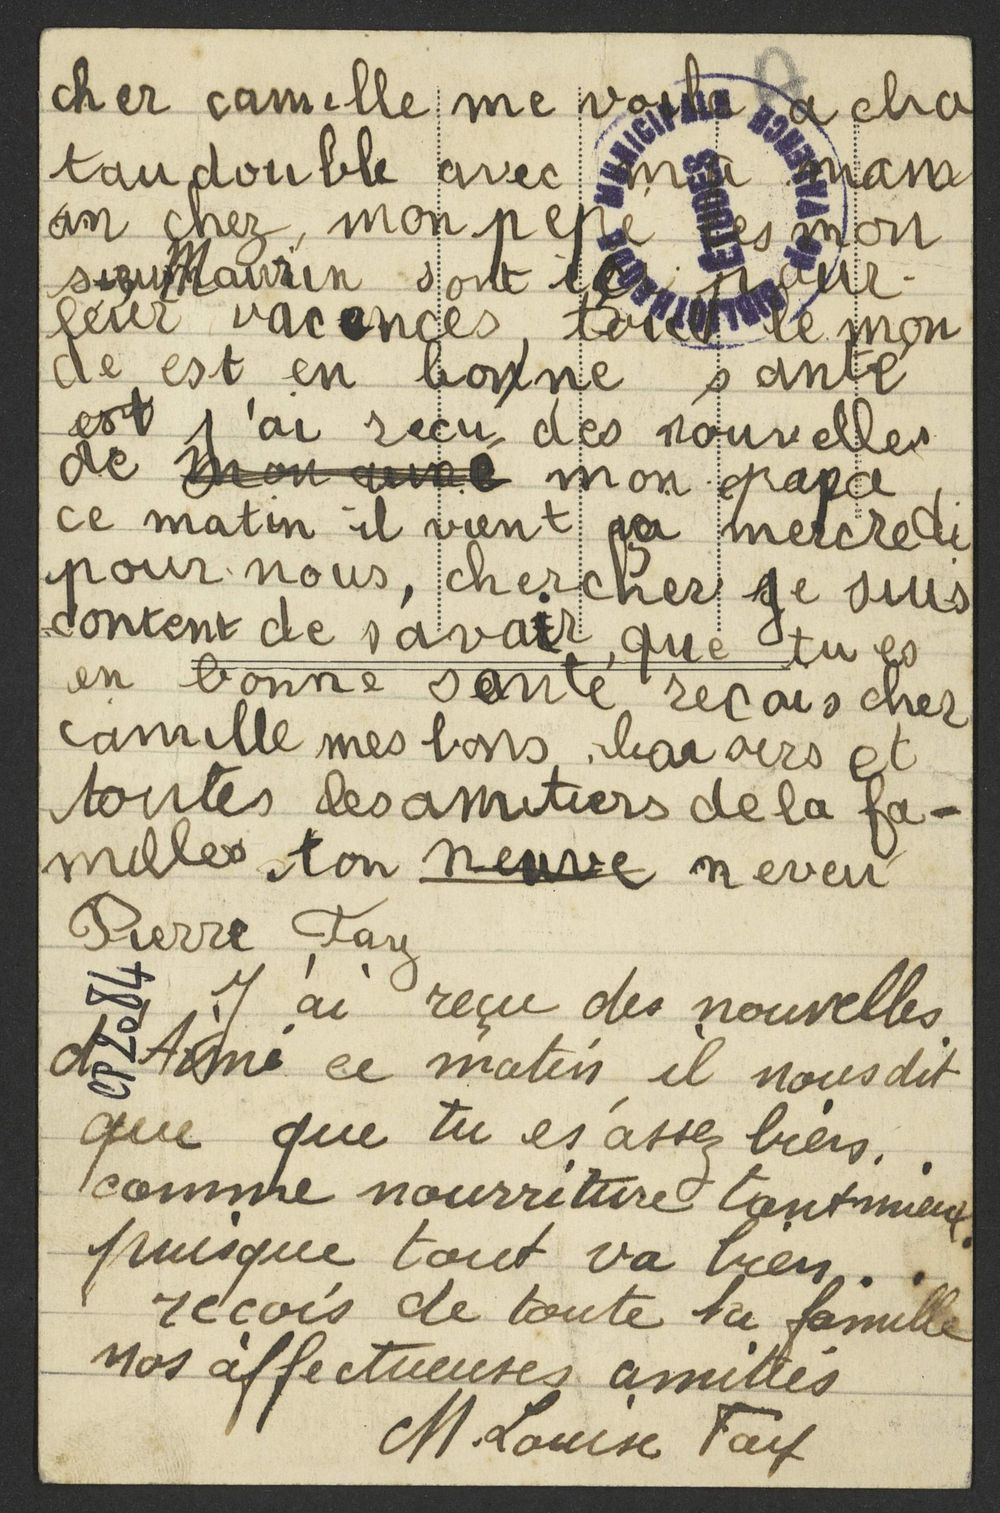 cher camille me voila a cha
taudouble avec ma mam
an chez, mon pepé les mon
Maurin sont ici pour
leur vacances, tout le mon
de est en bonne santé
est j'ai recu des nouvelles
de mon mon papa
ce matin il vient mercredi
pour nous, chercher je suis
content de savoir, que tu es
en bonne santé recois cher
camille mes bons baisers et
toutes les amitiers de la fa-
milles ton neuve neveu
Pierre Fay
J'ai reçu des nouvelles
d'Aimé ce matin il nous dit
que que tu es assez bien.
comme nourriture tant mieux.
puisque tout va bien..
recois de toute la famille
nos affectueuses amitiés
M. Louise Fay
BIBLIOTHEQUE MUNICIPALE DE VALENCE
ETUDES
CP2084